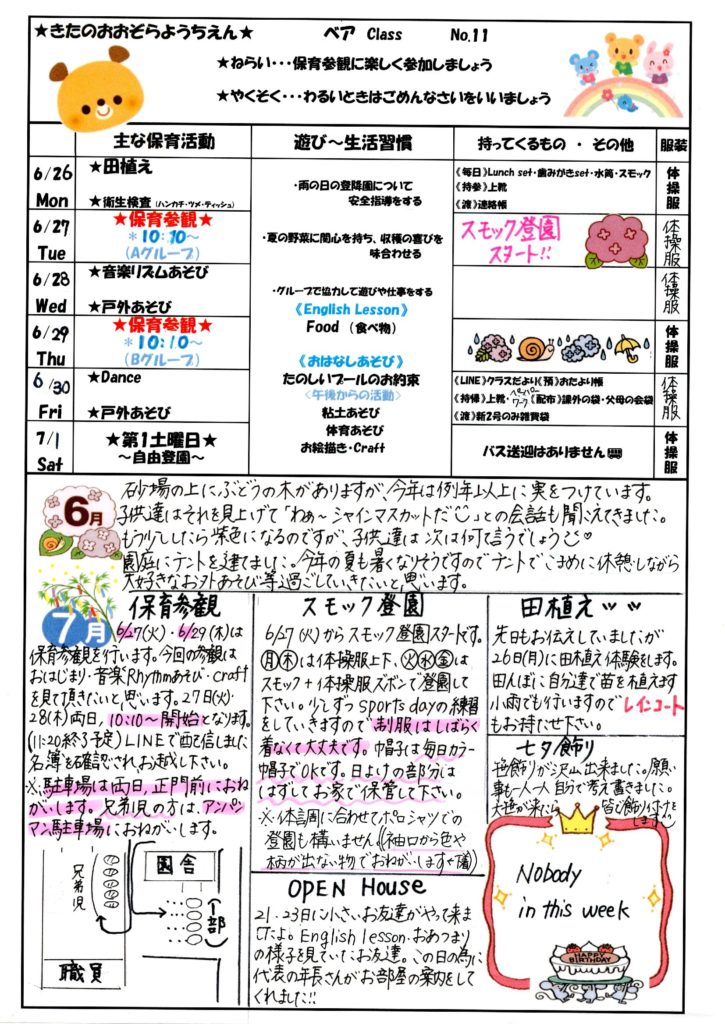 ★きたのおおぞらようちえん★
ベア Class No.11
★ねらい･･･保育参観に楽しく参加しましょう
★やくそく･･･わるいときはごめんなさいをいいましょう
主な保育活動 遊び～生活習慣 持ってくるもの ・ その他 服装
6/26
Mon
★田植え
★衛生検査(ハンカチ・ツメ・ティッシュ)
6/27
Tue
★保育参観★
＊10:10～
(Aグループ)
6/28
Wed
★音楽リズムあそび
★戸外あそび
6/29
Thu
★保育参観★
＊10:10～
(Bグループ)
6/30
Fri
★Dance
★戸外あそび
7/1
Sat
★第1土曜日★
～自由登園～
・雨の日の登降園について
安全指導をする
・夏の野菜に関心を持ち、収穫の喜びを
味合わせる
・グループで協力して遊びや仕事をする
《English Lesson》
Food (食べ物)
《おはなしあそび》
たのしいプールのお約束
<午後からの活動>
粘土あそび
体育あそび
お絵描き・Craft
《毎日》Lunch set・歯みがきset・水筒・スモック
《持参》上靴
《渡》連絡帳
スモック登園
スタート!!
《LINE》クラスだより《預》おたより帳
《持帰》上靴・ペーパーワーク《配布》課外の袋・父母の会袋
《渡》新2号のみ雑費袋
バス送迎はありません
体操服
体操服
体操服
体操服
体操服
体操服
6月
砂場の上にぶどうの木がありますが、今年は例年以上に実をつけています。
子供達はそれを見上げて「わぁ～シャインマスカットだ」との会話も聞こえてきました。
もう少ししたら紫色になるのですが、子供達は次は何て言うでしょう♡
園庭にテントを建てました。今年の夏も暑くなりそうですのでテントでこまめに休憩しながら
大好きなお外あそび等過ごしていきたいと思います。
7月
保育参観
6/27(火)・6/29(木)は
保育参観を行います。今回の参観は
おはじまり・音楽Rhythmあそび・craft
を見て頂きたいと思います。27日(火)・
28(木)両日、10:10～開始となります。
(11:20終了予定)LINEで配信しました
名簿を確認され、お越し下さい。
※駐車場は両日、正門前におね
がいします。兄弟児の方は、アンパン
マン駐車場におねがいします。
兄弟児
園舎
部
職員
スモック登園
6/27(火)からスモック登園スタートです。
月木は体操服上下、火水金は
スモック+体操服ズボンで登園して
下さい。少しずつsports dayの練習
をしていきますので制服はしばらく
着なくて大丈夫です。帽子は毎日カラー
帽子でOKです。日よけの部分は
はずしてお家で保管して下さい。
※体調に合わせてポロシャツでの
登園も構いません。(袖口から色や
柄が出ない物でおねがいします)
OPEN House
21.23日に小さいお友達がやって来ま
したよ。English lesson.おあつまり
の様子を見ていたお友達。この日の為に
代表の年長さんがお部屋の案内をして
くれました!!
田植え
先日もお伝えしていましたが
26日(月)に田植え体験をします。
田んぼに自分達で苗を植えます
小雨でも行いますのでレインコート
もお持たせ下さい。
七夕飾り
笹飾りが沢山出来ました。願い
事も一人一人自分で考え書きました。
大笹が来たら 皆で飾り付けを
します。
Nobody
in this week
HAPPY
BIRTHDAY